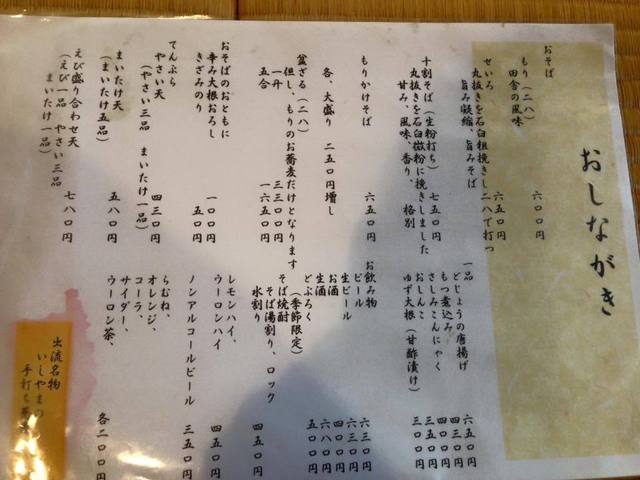 おしながき
おそば
もり（二八） 六〇〇円
田舎の風味
せいろ 六五〇円
丸抜きを石臼粗挽きし二八で打つ
旨み凝縮、旨みそば
十割そば（生粉打ち） 七五〇円
丸抜きを石臼微粉に挽きしました
甘み、風味、香り、格別
もりかけそば 六五〇円
各、大盛り 二五〇円増し
盆ざる（二八）
但し、もりのお蕎麦だけとなります
一升 三三〇〇円
五合 一六五〇円
おそばのおともに
辛み大根おろし 一〇〇円
きざみのり 五〇円
てんぷら
やさい天 四三〇円
（やさい三品 まいたけ一品）
まいたけ天 五八〇円
（まいたけ五品）
えび盛り合わせ天 七八〇円
（えび一品 やさい三品
まいたけ一品）
一品
どじょうの唐揚げ 六五〇円
もつ煮込み 四三〇円
さしみこんにゃく 四五〇円
おしんこ
ゆず大根（甘酢漬け） 三〇〇円
お飲み物
ビール 六三〇円
生ビール 六三〇円
お酒 四〇〇円
生酒 六八〇円
どぶろく 五〇〇円
（季節限定）
そば焼酎 四五〇円
そば湯割り、ロック
水割り
レモンハイ、
ウーロンハイ 四五〇円
ノンアルコールビール 三五〇円
らむね、
オレンジ、
コーラ、
サイダー、
ウーロン茶、 各二〇〇円
出流名物
いしやまの
手打ち蕎